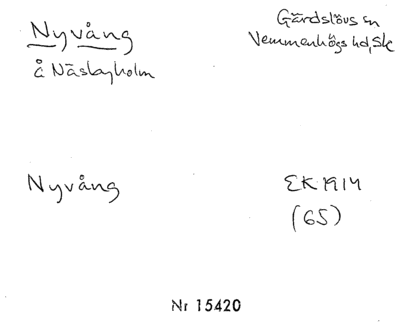 Nyvång
å Näsbyholm
Gärdslövs sn
Vemmenhögs hd, Sk
Nyvång
EK 1914
(65)
Nr 15420